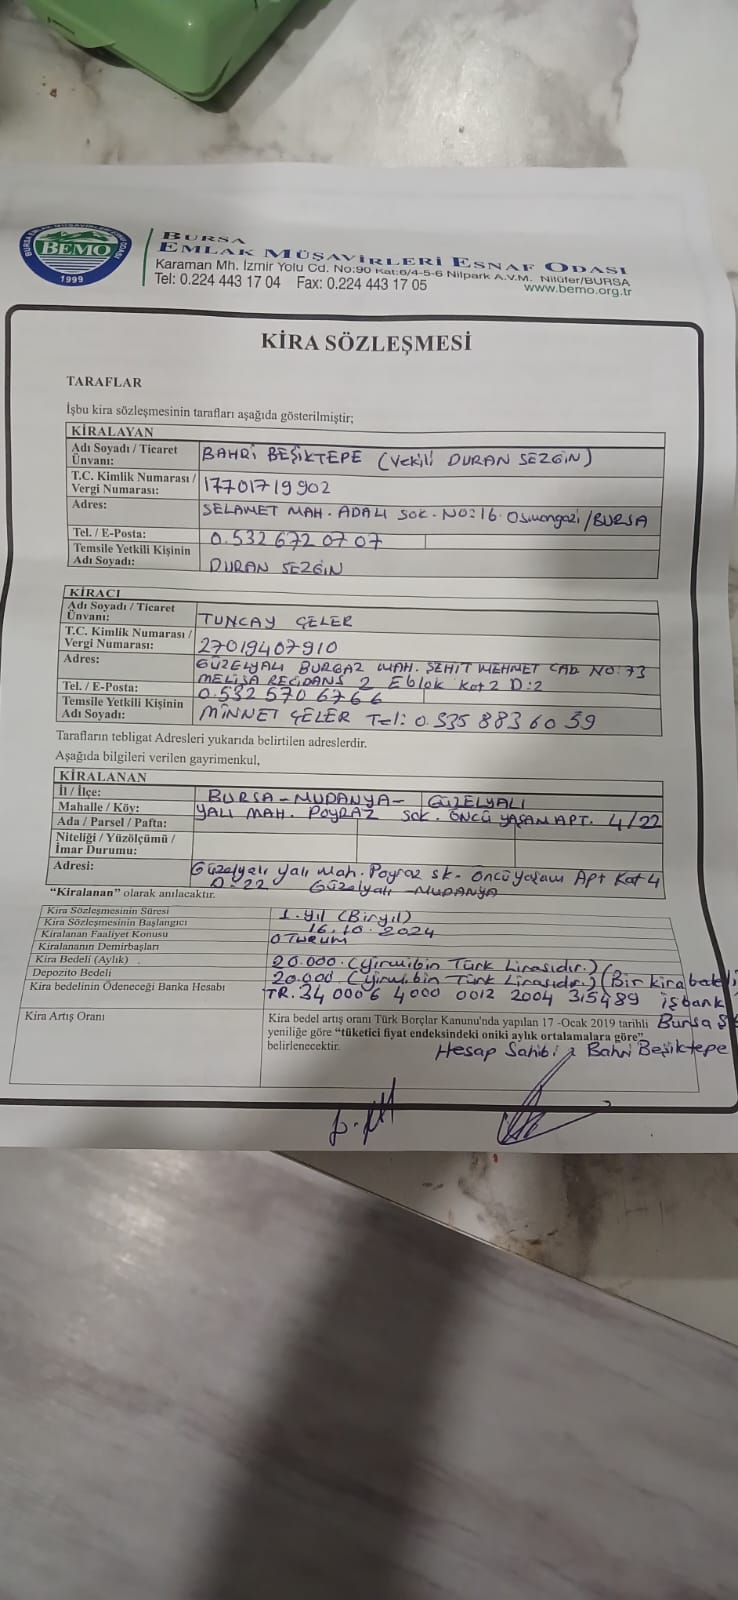 BURSA EMLAK MÜŞAVİRLERİ ESNAF ODASI
BEMO
1999
BURSA
EMLAK MÜŞAVİRLERİ ESNAF ODASI
Karaman Mh. İzmir Yolu Cd. No:90 Kat:6/4-5-6 Nilpark A.V.M. Nilüfer/BURSA
Tel: 0.224 443 17 04 Fax: 0.224 443 17 05
www.bemo.org.tr
KİRA SÖZLEŞMESİ
TARAFLAR
İşbu kira sözleşmesinin tarafları aşağıda gösterilmiştir;
KİRALAYAN
Adı Soyadı / Ticaret Ünvanı: BAHRİ BEŞİKTEPE (Vekili DURAN SEZGİN)
T.C. Kimlik Numarası / Vergi Numarası: 17701719902
Adres: SELAMET MAH. ADALI SOK. NO:16. Osmangazi /BURSA
Tel. / E-Posta: 0.532 672 07 07
Temsile Yetkili Kişinin Adı Soyadı: DURAN SEZGİN
KİRACI
Adı Soyadı / Ticaret Ünvanı: TUNCAY GELER
T.C. Kimlik Numarası / Vergi Numarası: 27019407910
Adres: GÜZELYALI BURGAZ MAH. ŞEHİT MEHMET CAD NO:73
MELİSA REZİDANS 2 E blok Kat 2 D:2
Tel. / E-Posta: 0.532 570 67 66
Temsile Yetkili Kişinin Adı Soyadı: MİNNET GELER Tel: 0.535 883 60 59
Tarafların tebligat Adresleri yukarıda belirtilen adreslerdir.
Aşağıda bilgileri verilen gayrimenkul,
KİRALANAN
İl / İlçe: BURSA - MUDANYA - GÜZELYALI
Mahalle / Köy: YALI MAH. POYRAZ SOK. ÖNCÜ YAŞAM APT. 4/22
Ada / Parsel / Pafta:
Niteliği / Yüzölçümü / İmar Durumu:
Adresi: Güzelyalı Yalı Mah. Poyraz sk. Öncü yaşam Apt Kat 4
D:22 Güzelyalı - MUDANYA
“Kiralanan” olarak anılacaktır.
Kira Sözleşmesinin Süresi 1. yıl (Bir yıl)
Kira Sözleşmesinin Başlangıcı 16.10.2024
Kiralanan Faaliyet Konusu OTURUM
Kiralananın Demirbaşları
Kira Bedeli (Aylık) 20.000. (yirmibin Türk Lirasıdır.)
Depozito Bedeli 20.000. (yirmibin Türk Lirasıdır.) (Bir kira bedeli
Kira bedelinin Ödeneceği Banka Hesabı TR.34 0006 4000 0012 2004 315489 işbank
Kira Artış Oranı Kira bedel artış oranı Türk Borçlar Kanunu'nda yapılan 17 -Ocak 2019 tarihli Bursa Ş
yeniliğe göre “tüketici fiyat endeksindeki oniki aylık ortalamalara göre”
belirlenecektir.
Hesap Sahibi : Bahri Beşiktepe